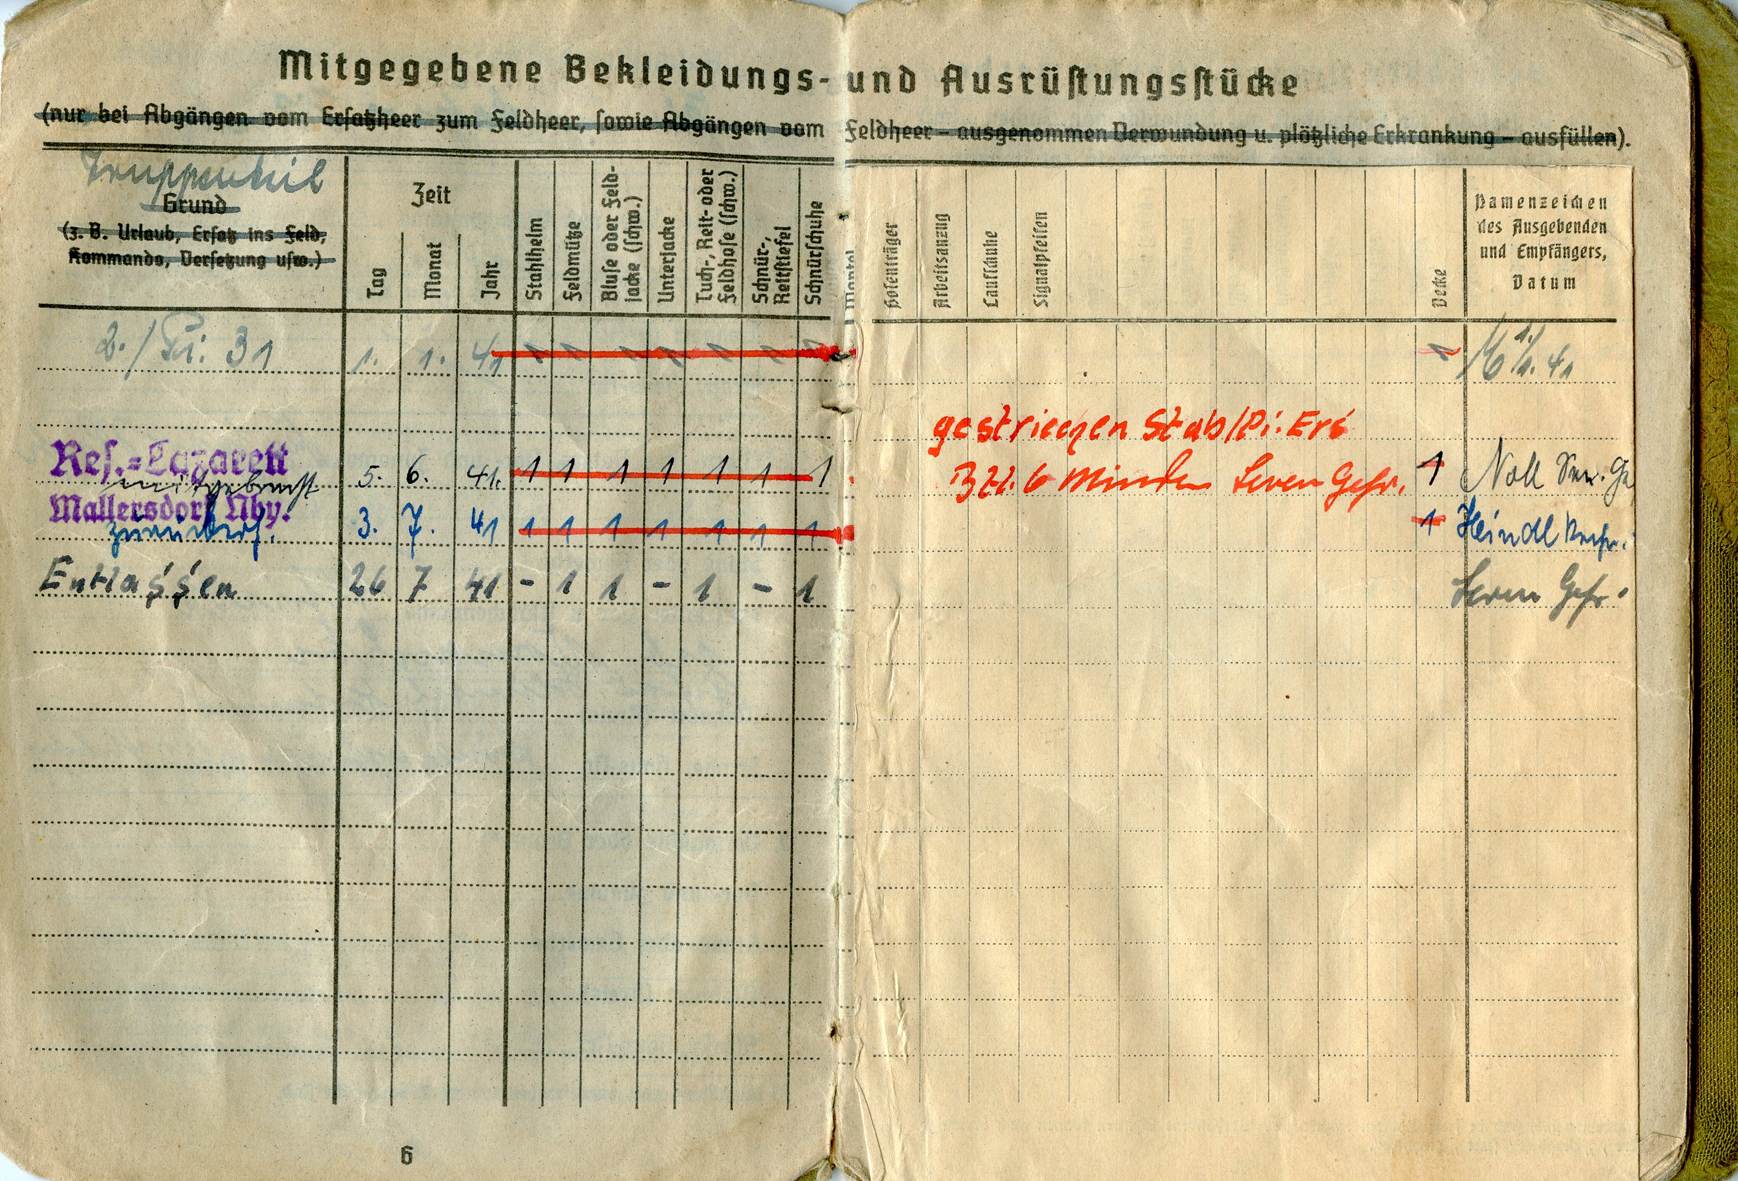 Mitgegebene Bekleidungs- und Ausrüstungsstücke
(nur bei Abgängen vom Ersatzheer zum Feldheer, sowie Abgängen vom Feldheer – ausgenommen Verwundung u. plötzliche Erkrankung – ausfüllen).
Truppenteil
Grund
(z. B. Urlaub, Ersatz ins Feld,
Kommando, Versetzung usw.)
Zeit
Tag
Monat
Jahr
Stahlhelm
Feldmütze
Bluse oder Feld-
jacke (schw.)
Unterjacke
Tuch-, Reit- oder
Feldhose (schw.)
Schnür-,
Reitstiefel
Schnürschuhe
Mantel
Hosenträger
Arbeitsanzug
Laufschuhe
Signalpfeifen
Decke
Namenzeichen
des Ausgebenden
und Empfängers,
Datum
2./Pi. 31 1. 1. 41 1 1 1 1 1 1 1 1 1.1.41
gestriechen Stab/Pi. Ers
Res.-Lazarett
mitgebracht 5. 6. 41. 1 1 1 1 1 1 1 Btl. 6 Minden Gefr. 1 Noll
Mallersdorf Nby.
3. 7. 41 1 1 1 1 1 1 1 1 Heindl
Entlassen 26 7 41 - 1 1 - 1 - 1 Gefr.
6